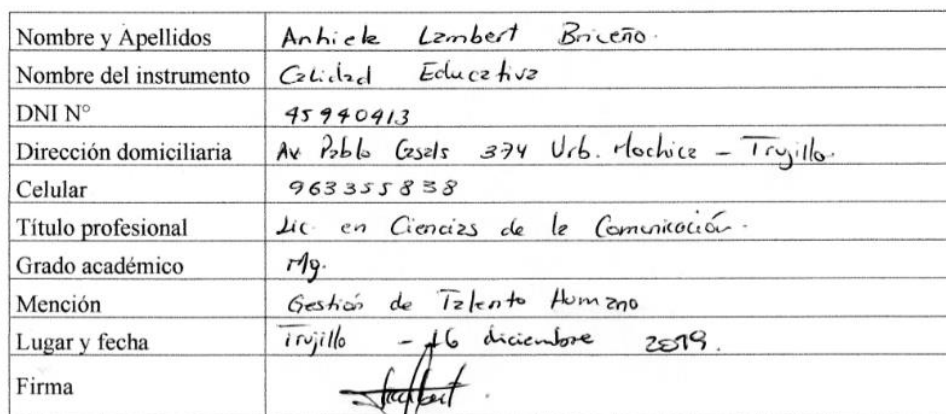 Nombre y Apellidos Anhiela Lambert Briceño.
Nombre del instrumento Calidad Educativa
DNI N° 45940413
Dirección domiciliaria Av Pablo Casals 374 Urb. Mochica – Trujillo.
Celular 963355838
Título profesional Lic. en Ciencias de la Comunicación.
Grado académico Mg.
Mención Gestión de Talento Humano
Lugar y fecha Trujillo – 16 diciembre 2019.
Firma